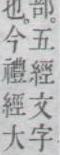 部。五經文字
也。今禮經大